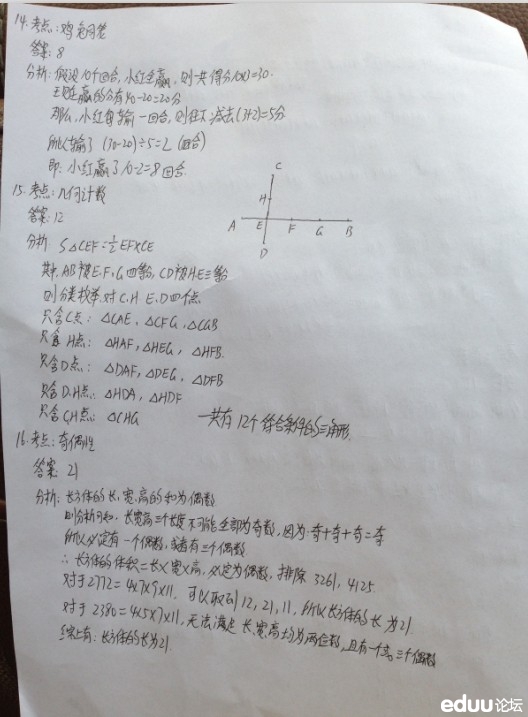 14.考点:鸡兔同笼
答案:8
分析:假设10个回合,小红全赢,则一共得分10×3=30.
那么,小红每输一回合,则往下减去(3+2)=5分
所以输了(30-20)÷5=2(回合)
即:小红赢了10-2=8回合.
15.考点:几何计数
答案:12
分析:S△CEF=½EF×CE
其中,AB被E.F.G四等分,CD被H.E三等分
则分类枚举.对C.H E.D四个点.
只含C点:△CAE,△CFG,△CGB
只含H点:△HAF,△HEG,△HFB.
只含D点:△DAF,△DEG,△DFB
只含D.H点:△HDA,△HDF
只含C,H点:△CHG
一共有12个符合条件的三角形.
C
H
A E F G B
D
16.考点:奇偶性
答案:21
分析:长方体的长、宽、高的和为偶数
则分析可知,长宽高三个长度不可能全部为奇数,因为:奇+奇+奇=奇
所以必定有一个偶数,或者有三个偶数
∴长方体的体积=长×宽×高,必定为偶数,排除3261,4125.
对于2772=4×7×9×11,可以取到12,21,11,所以长方体的长为21.
对于2380=4×5×7×11,无法满足长、宽、高均为两位数,且有一个或三个偶数
综上有:长方体的长为21.
eduu论坛